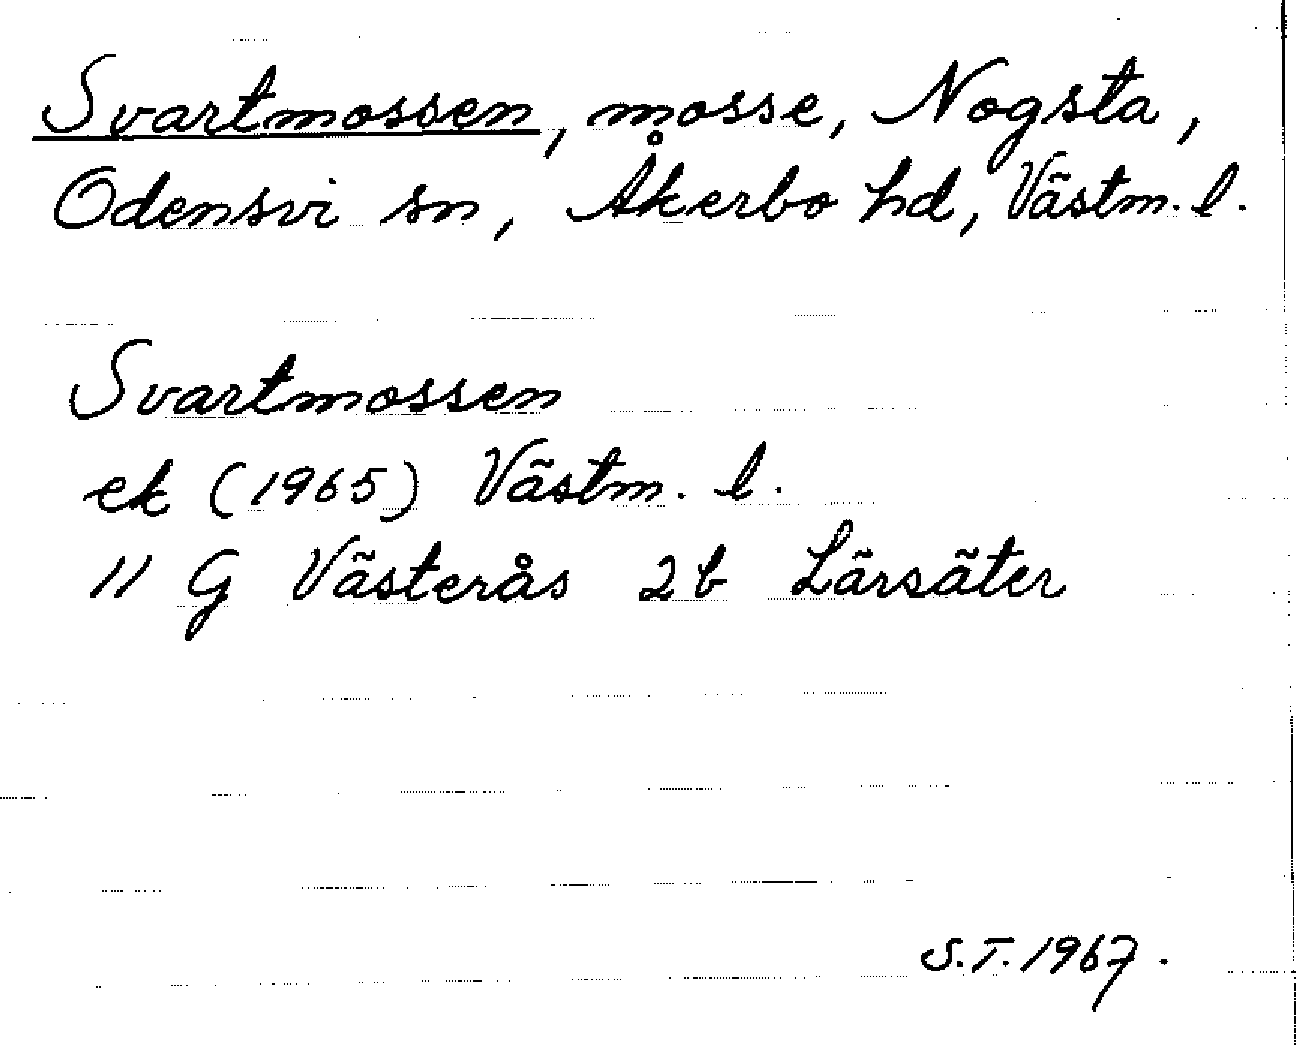 Svartmossen, mosse, Nogsta,
Odensvi sn, Åkerbo hd, Västm. l.
Svartmossen
ek (1965) Västm. l.
11 G Västerås 2b Lärsäter
S.T. 1967.